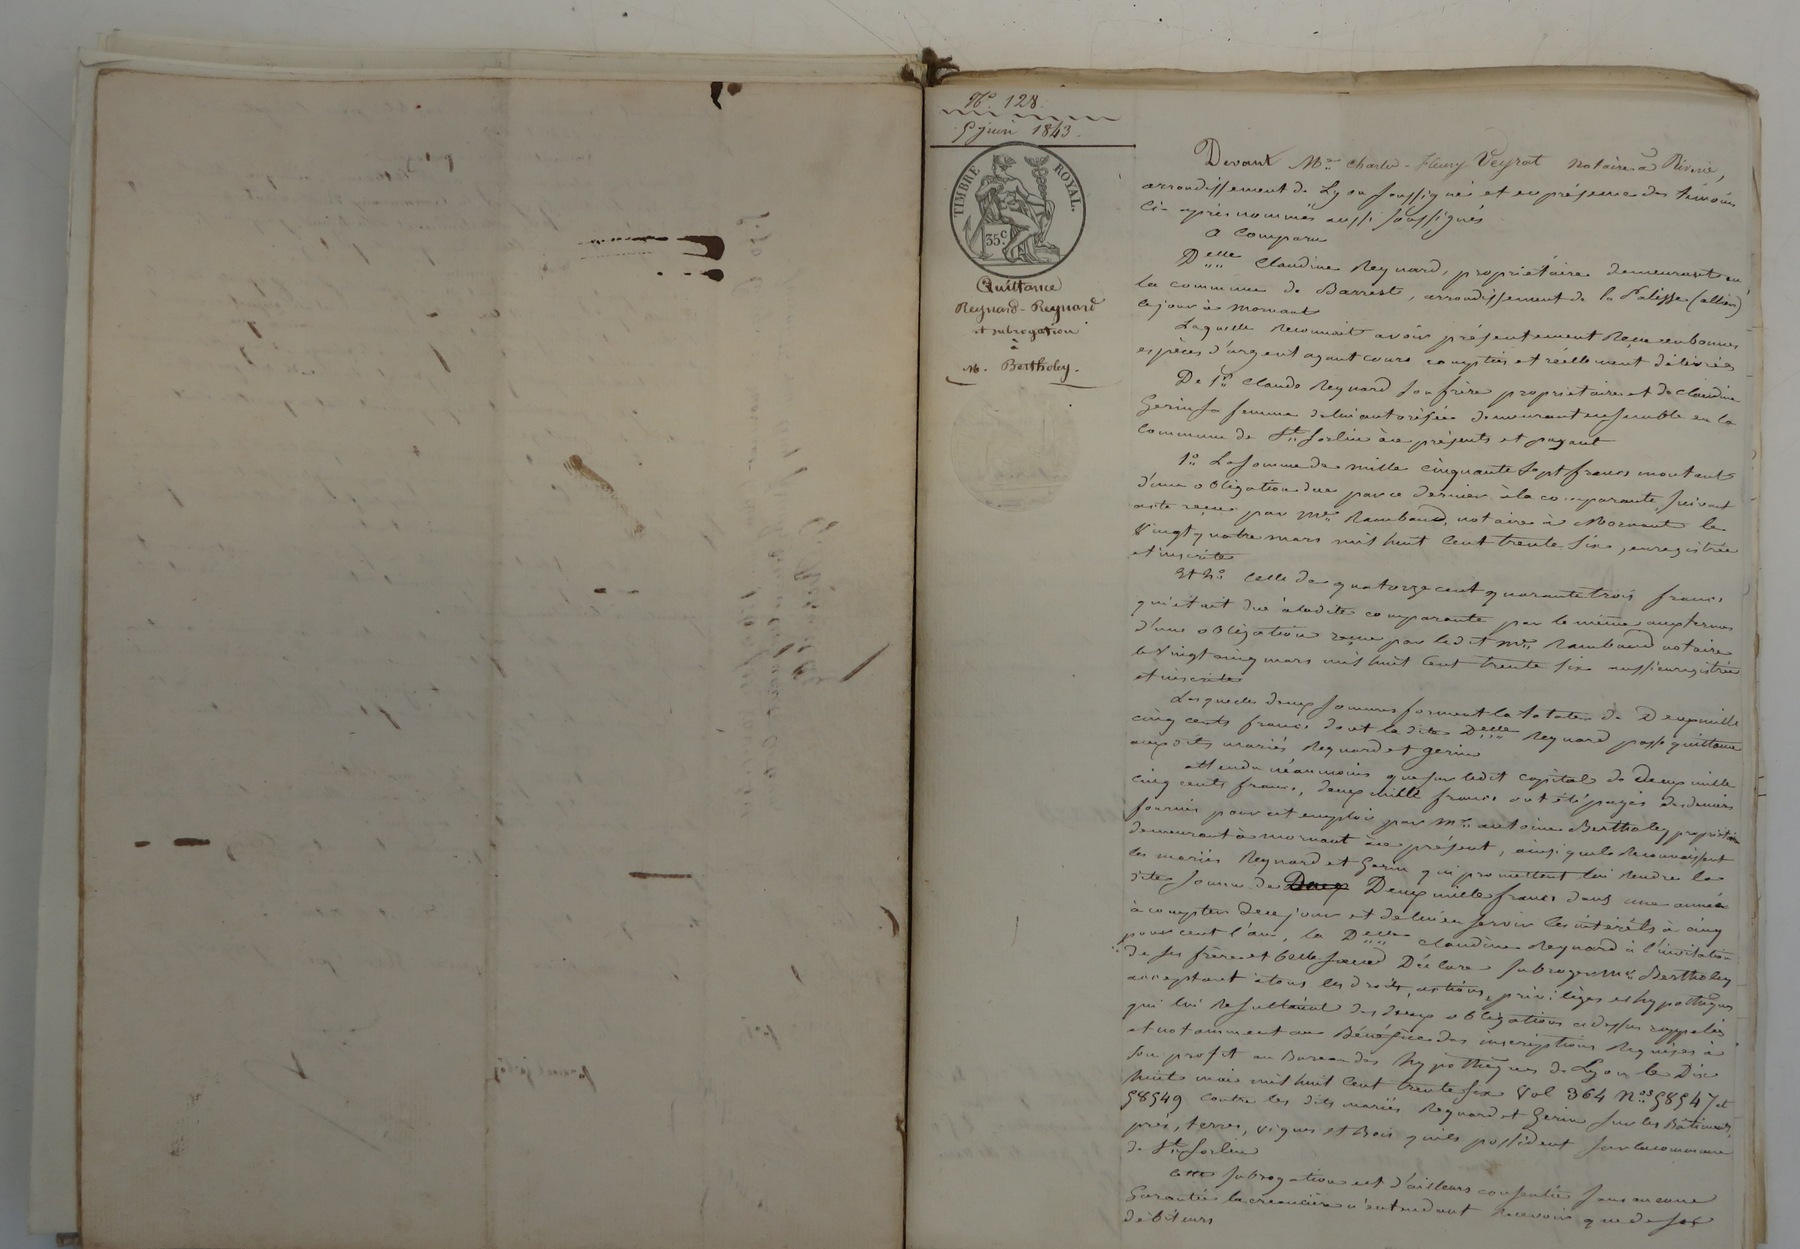 No. 128.
9 juin 1843.
TIMBRE ROYAL.
35 c.
Quittance
Reynard-Reynard
et subrogation
à
M. Bertholey.
Devant Me. Charles-Fleury Veyrat notaire à Riverie,
arrondissement de Lyon soussigné et en présence des témoins
ci-après nommés aussi soussignés
a comparu
Delle Claudine Reynard, propriétaire demeurant en
la commune de Barrest, arrondissement de la Palisse (allier)
ce jour à Mornant
Laquelle reconnait avoir présentement Reçu en bonnes
espèces d'argent ayant cours comptées et réellement délivrées
De Sr. Claude Reynard son frère propriétaire et de Claudine
Gerin sa femme de lui autorisée demeurant ensemble en la
Commune de St. Sorlin à ce présents et payant
1o. La somme de mille cinquante sept francs montant
d'une obligation due par ce dernier à la comparante, suivant
acte reçu par Me. Rambaud, notaire à Mornant le
Vingt quatre mars mil huit Cent trente six, enregistrée
et inscrite
Et 2o. Celle de quatorze cent quarante trois francs
qui était due à ladite comparante par le même aux termes
d'une obligation reçue par ledit Me. Rambaud notaire
le Vingt cinq mars mil huit Cent trente six aussi enregistrée
et inscrite
Lesquelles deux sommes forment la totale de Deux mille
cinq cents francs dont la dite Delle Reynard passe quittance
auxdits mariés Reynard et Gerin
attendu néanmoins que sur ledit capital de Deux mille
cinq cents francs, deux mille francs ont été payés des deniers
fournis pour cet emploi par Mr. antoine Bertholey propriétaire
demeurant à Mornant à ce présent, ainsi que le Reconnaissent
les mariés Reynard et Gerin qui promettent lui rendre la
dite somme de Deux Deux mille francs dans une année
à compter de ce jour et de lui en servir les intérêts à cinq
pour cent l'an, la Delle Claudine Reynard à l'invitation
de ses frère et belle soeur Déclare subroger Mr. Bertholey
acceptant à tous les droits, actions, privilèges et hypothèques
qui lui Résultaient des deux obligations ci dessus rappelées
et notamment au Bénéfice des inscriptions Requises à
son profit au Bureau des hypothèques de Lyon le Dix
huit mai mil huit Cent trente six Vol 364 Nos 58547 et
58549 contre les dits mariés Reynard et Gerin sur les Bâtiments,
près, terres, vignes et Bois qu'ils possèdent sur la commune
de St. Sorlin
Cette subrogation est d'ailleurs consentie sans aucune
Garantie la créancière n'entendant recevoir que de ses
débiteurs